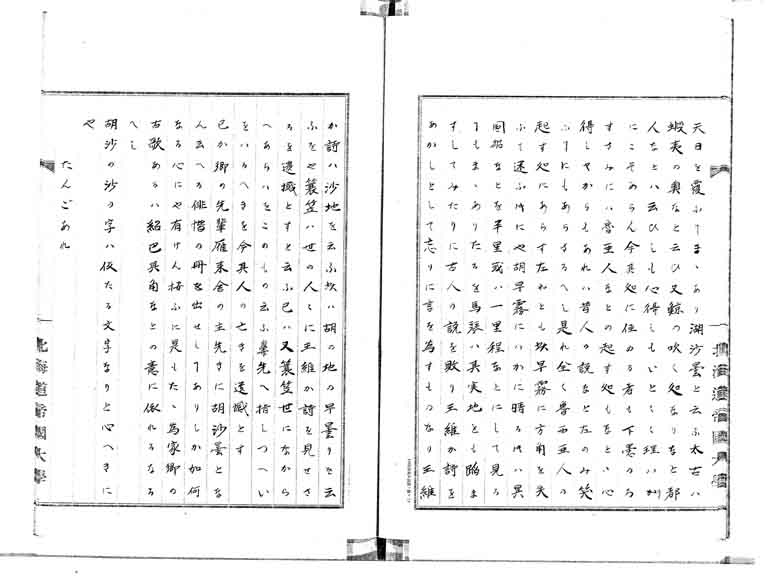 天日を覆ふてまゝあり湖沙曇と云ふ太古ハ
蝦夷の奥なと云ひ又鯨の吹く処なりなと都
人なとハ云ひしも心得しもいとをし理ハ
にこそあらん今其処に住める者も下墨のる
すさみにハ魯亜人なとの起す処もなといい心
得しやからもあれハ昔人の説なと左のみ笑
ふへにもあらさるへし是れ全く魯西亜人の
起す処にあらす左れとも坎早霧に方角を失
ふて迷ふ にや胡早霧にハかに時るハ異
国船なとを半里或ハ一里程なとにして見る
事もまゝありたるを馬張ハ其実地とも踏ま
すしてみたりに古人の説を敗り王維か詩を
あかしとして忘りに言を為すものなり王維
か詩ハ沙地を云ふ坎ハ胡の地の早曇りを云
ふをや簑笠ハ世の人々に王維か詩を見せさ
るを遺憾とすと云ふ已ハ又簑笠世になから
へあらハをこのもの云ふ輩先へ指しつへい
をハるへきを今其人の亡きを遺憾とす
已か郷の先輩雁来舎の主先きに胡沙曇とな
ん云へる俳偕の冊を出せしてありしか如何
なる心にや有けん拾ふに是もたゝ為家卿の
古歌あるハ紹巴其角なとの意に依れるなる
へし
胡沙の沙の字ハ仮たる文字なりと心へきに
や
たんごあれ
北海道帝国大學
北海道帝國大學